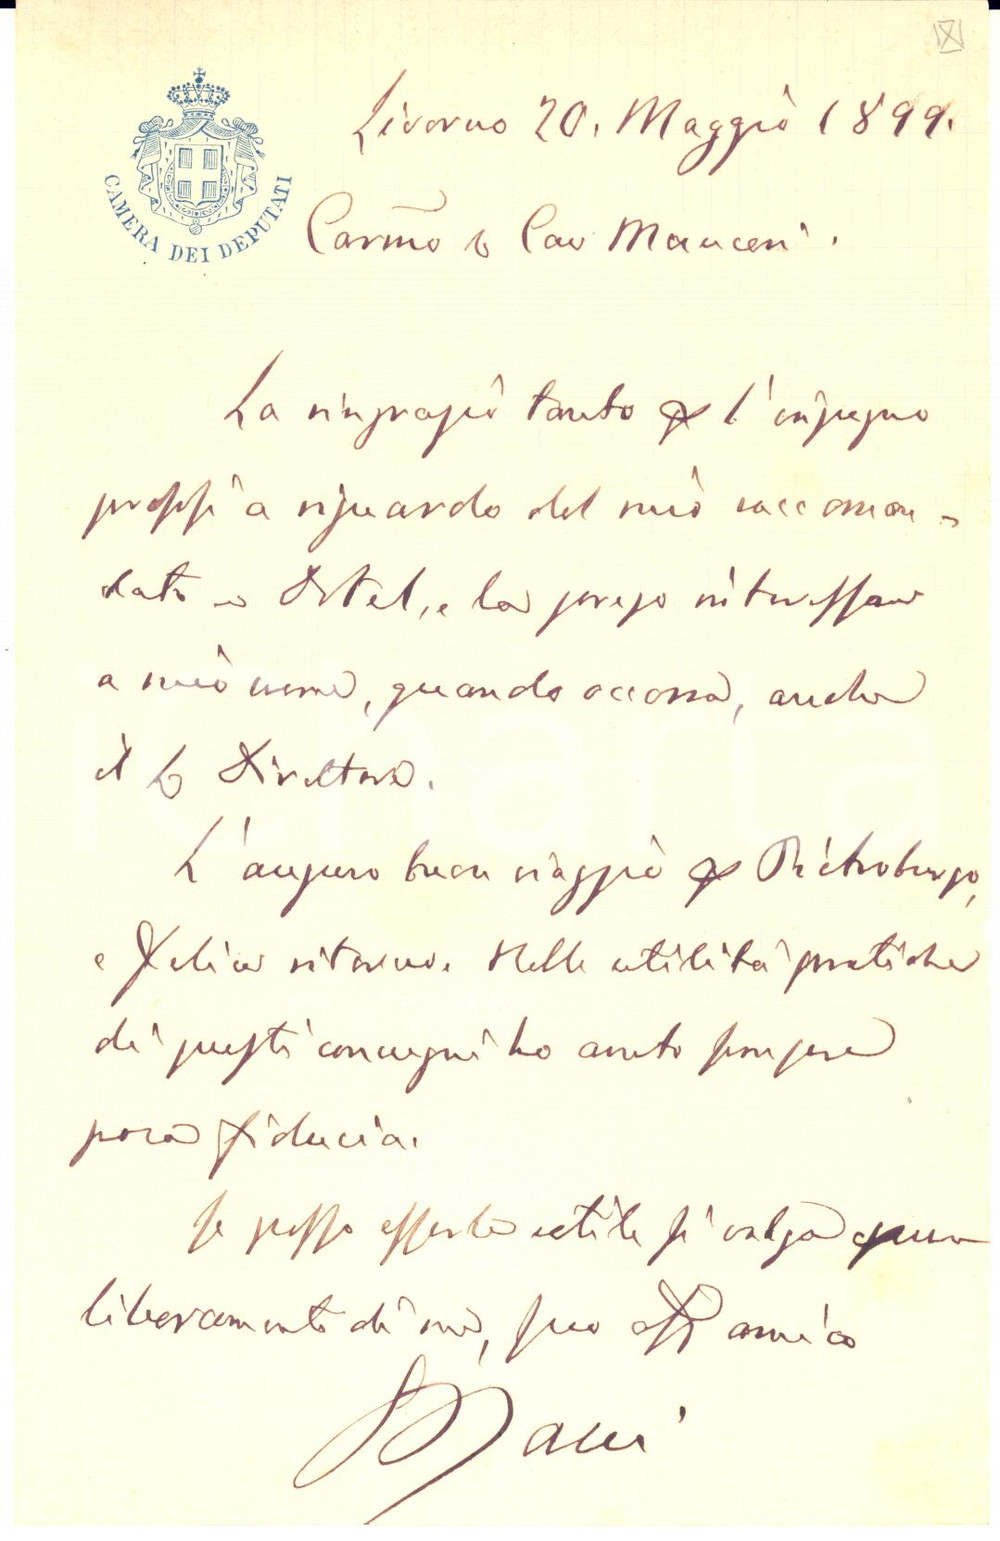 CAMERA DEI DEPUTATI
Livorno 20. Maggio 1899.
Carmo Cav Manceri.
La ringrazio tanto l'impegno
preso a riguardo del mio raccoman=
dato la prego interessare
a mio nome, quando occorra, anche
il Direttore.
L'auguro buon viaggio Pietroburgo,
e felice ritorno. Nelle utilità pratiche
di questi convegni ho avuto sempre
poca fiducia.
Se posso esserle utile si valga pure
liberamente di me, suo aff amico